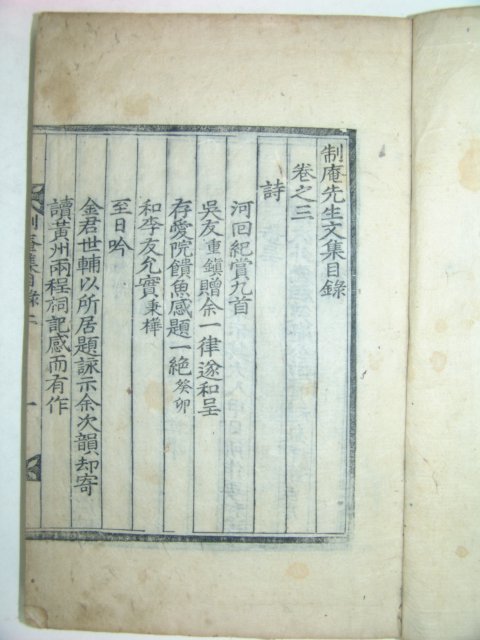 制庵先生文集目錄
卷之三
詩
河回紀賞九首
吳友重鎭贈余一律遂和呈
存愛院饋魚感題一絶癸卯
和李友允實秉樺
至日吟
金君世輔以所居題詠示余次韻却寄
讀黃州兩程祠記感而有作
制庵集目錄二 一